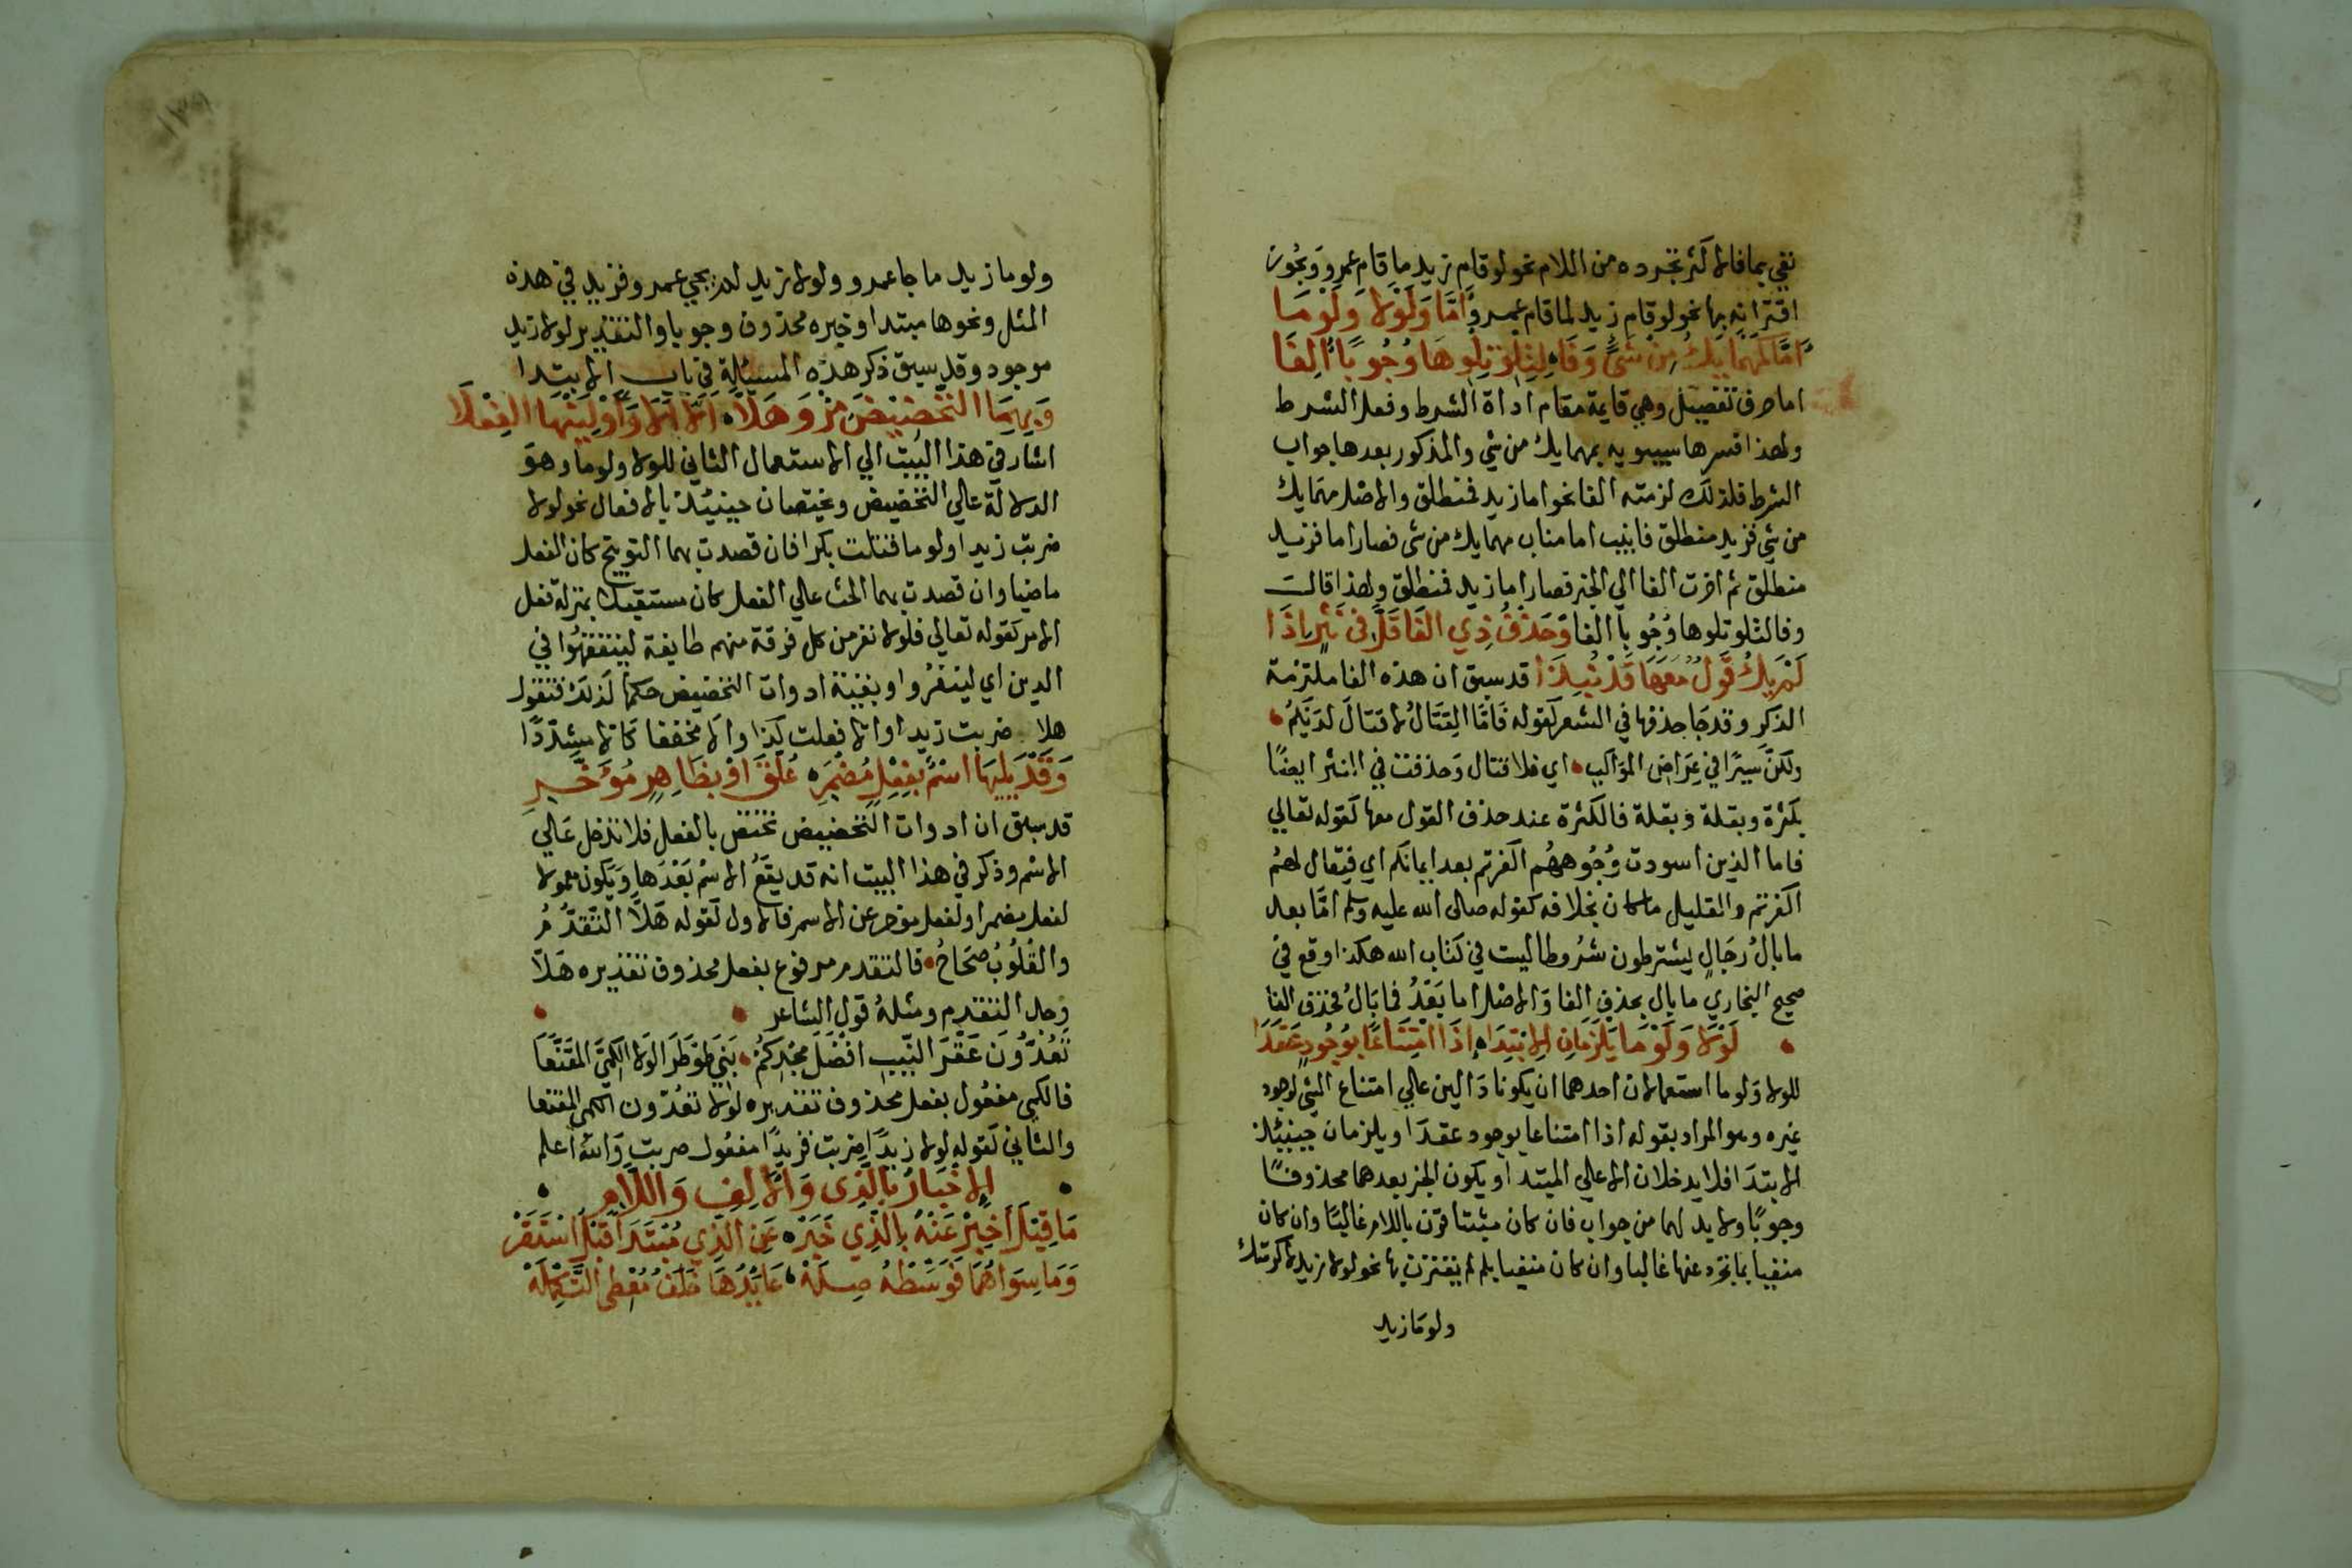 نفي بما فالاكثر تجرده من اللام نحو لو قام زيد ما قام عمرو ويجوز
اقترانه بها نحو لو قام زيد لما قام عمرو اَمَّا وَلَوْلا وَلَوْمَا
اَمَّا كَمَهْمَا يَكُ مِنْ شَئٍ وَفَا لِتِلْوِ تِلْوِهَا وُجُوبًا اُلِفَا
اما حرف تفصيل وهي قايمة مقام اداة الشرط وفعل الشرط
ولهذا فسرها سيبويه بمهما يك من شي والمذكور بعدها جواب
الشرط فلذلك لزمته الفا نحو اما زيد فمنطلق والاصل مهما يك
من شي فزيد منطلق فانيب اما مناب مهما يك من شي فصار اما فزيد
منطلق ثم اخرت الفا الي الخبر فصار اما زيد فمنطلق ولهذا قالـ
وفا لتلو تلوها وُجُوبا الفا وَحَذْفُ ذِي الفَا قَلَّ فى نَثْرٍ اِذَا
لَمْ يَكُ قَوْلٌ مَعَهَا قَدْ نُبِذَا قد سبق ان هذه الفا ملتزمة
الذكر وقد جَا حذفها في الشعر كقوله فَاَمَّا القِتَالُ لا قتالَ لَدَيْكمُ
ولكنَّ سَيرًا في عِرَاضِ المواكبِ اي فلا قتال وَحذفت في النثر ايضًا
بكثرة وبقلة فالكثرة عند حذف القول معها كقوله تعالي
فاما الذين اسودت وُجُوههُم اكفرتم بعد ايمانكم اي فيقال لهمُ
اكفرتم والقليل ما كان بخلافه كقوله صلى الله عليه وسلم امَّا بعد
ما بالُ رجَالٍ يشترطون شُروطا ليست في كتاب الله هكذا وقع في
صحيح البخاري ما بال بحذف الفا وَالاصل اما بَعْدُ فما بَالُ فحذف الفا
لَوْلا وَلَوْمَا يَلْزَمَانِ الابْتِدَا اِذَا امْتِنَاعًا بِوُجُودٍ عَقَدَا
للولا وَلوما استعمالان احدهما ان يكونا دَالين عالي امتناع الشي لوجود
غيره وهو المراد بقوله اذا امتناعا بوجود عقدَا ويلزمان حينيئذ
الابتدَا فلا يدخلان الا عالي المبتدا ويكون الخبر بعدهما محذوفًا
وجوبًا ولا بد لهما من جواب فان كان مثبتا قرن باللام غالبًا وان كان
منفيا بما تجرد عنها غالبا وان كان منفيا بلم لم يقترن بها نحو لولا زيد لاكرمتك
ولومَا زيد
ولوما زيد ما جا عمرو ولولا زيد لم يجي عمرو فزيد في هذه
المثل ونحوها مبتدا وخبره محذوف وجوبا والتقدير لولا زيد
موجود وقد سبق ذكر هذه المسئلة في باب الابتدا
وَبِهِمَا التَّخْضِيْضَ مِزْ وَهَلَّا اَلَّا اَلا وَاَوْلِيَنْهَا الفِعْلَا
اشار في هذا البيت الي الاستعمال الثاني للولا ولوما وهوَ
الدلالة عالي التخضيض ويختصان حينيئذ بالافعال نحو لولا
ضربت زيدا ولوما قتلت بكرا فان قصدت بهما التوبيخ كان الفعل
ماضيا وان قصدت بهما الحث عالي الفعل كان مستقبلا بمنزلة فعل
الامر كقوله تعالي فلولا نفر من كل فرقة منهم طايفة ليتفقهُوا في
الدين اي لينفرُوا وبقية ادوات التخضيض حكمها كذلك فتقول
هلا ضربت زيدا والا فعلت كذا والا مخففا كالا مشدّدًا
وَقَدْ يَلِيهَا اسْمٌ بِفِعْلٍ مُضْمَرِ عُلِّقَ اوْ بِظَاهِرٍ مُؤَخَّرِ
قد سبق ان ادوات التخضيض تختص بالفعل فلا تدخل عَالي
الاسْم وذكر في هذا البيت انه قد يقعُ الاسْمُ بَعْدَهَا وَيكون معمولا
لفعل مضمر او لفعل موخر عن الاسم فالاول كقوله هَلَّا التَّقَدُّمُ
والقُلُوبُ صِحَاحُ فالتقدم مرفوع بفعل محذوف تقديره هَلّا
وجد التقدم ومثلهُ قول الشاعر
تَعُدُّونَ عَقْرَ النّيبِ افْضَلَ مَجْدِكُمْ بَنِي ضَوْطَرَا لولا الكَمِيَّ المقَنَّعَا
فالكمي مفعُول بفعل محذوف تقديره لولا تعُدّون الكمى المقنعا
والثاني كقوله لولا زيدًا ضربت فزيدًا مفعُول ضربت وَاللهُ اعلم
الاخْبَارُ بِالَّذِى وَالالِفِ وَاللَّامِ
مَا قِيْلَ اَخْبِرْ عَنْهُ بِالَّذِي خَبَرْ عَنِ الَّذِي مُبْتَدَاً قَبْلُ اسْتَقَرْ
وَمَا سِوَاهُمَا فَوَسِّطْهُ صِلَهْ عَايِدُهَا خَلَفُ مُعْطِى التَّكْمِلَهْ